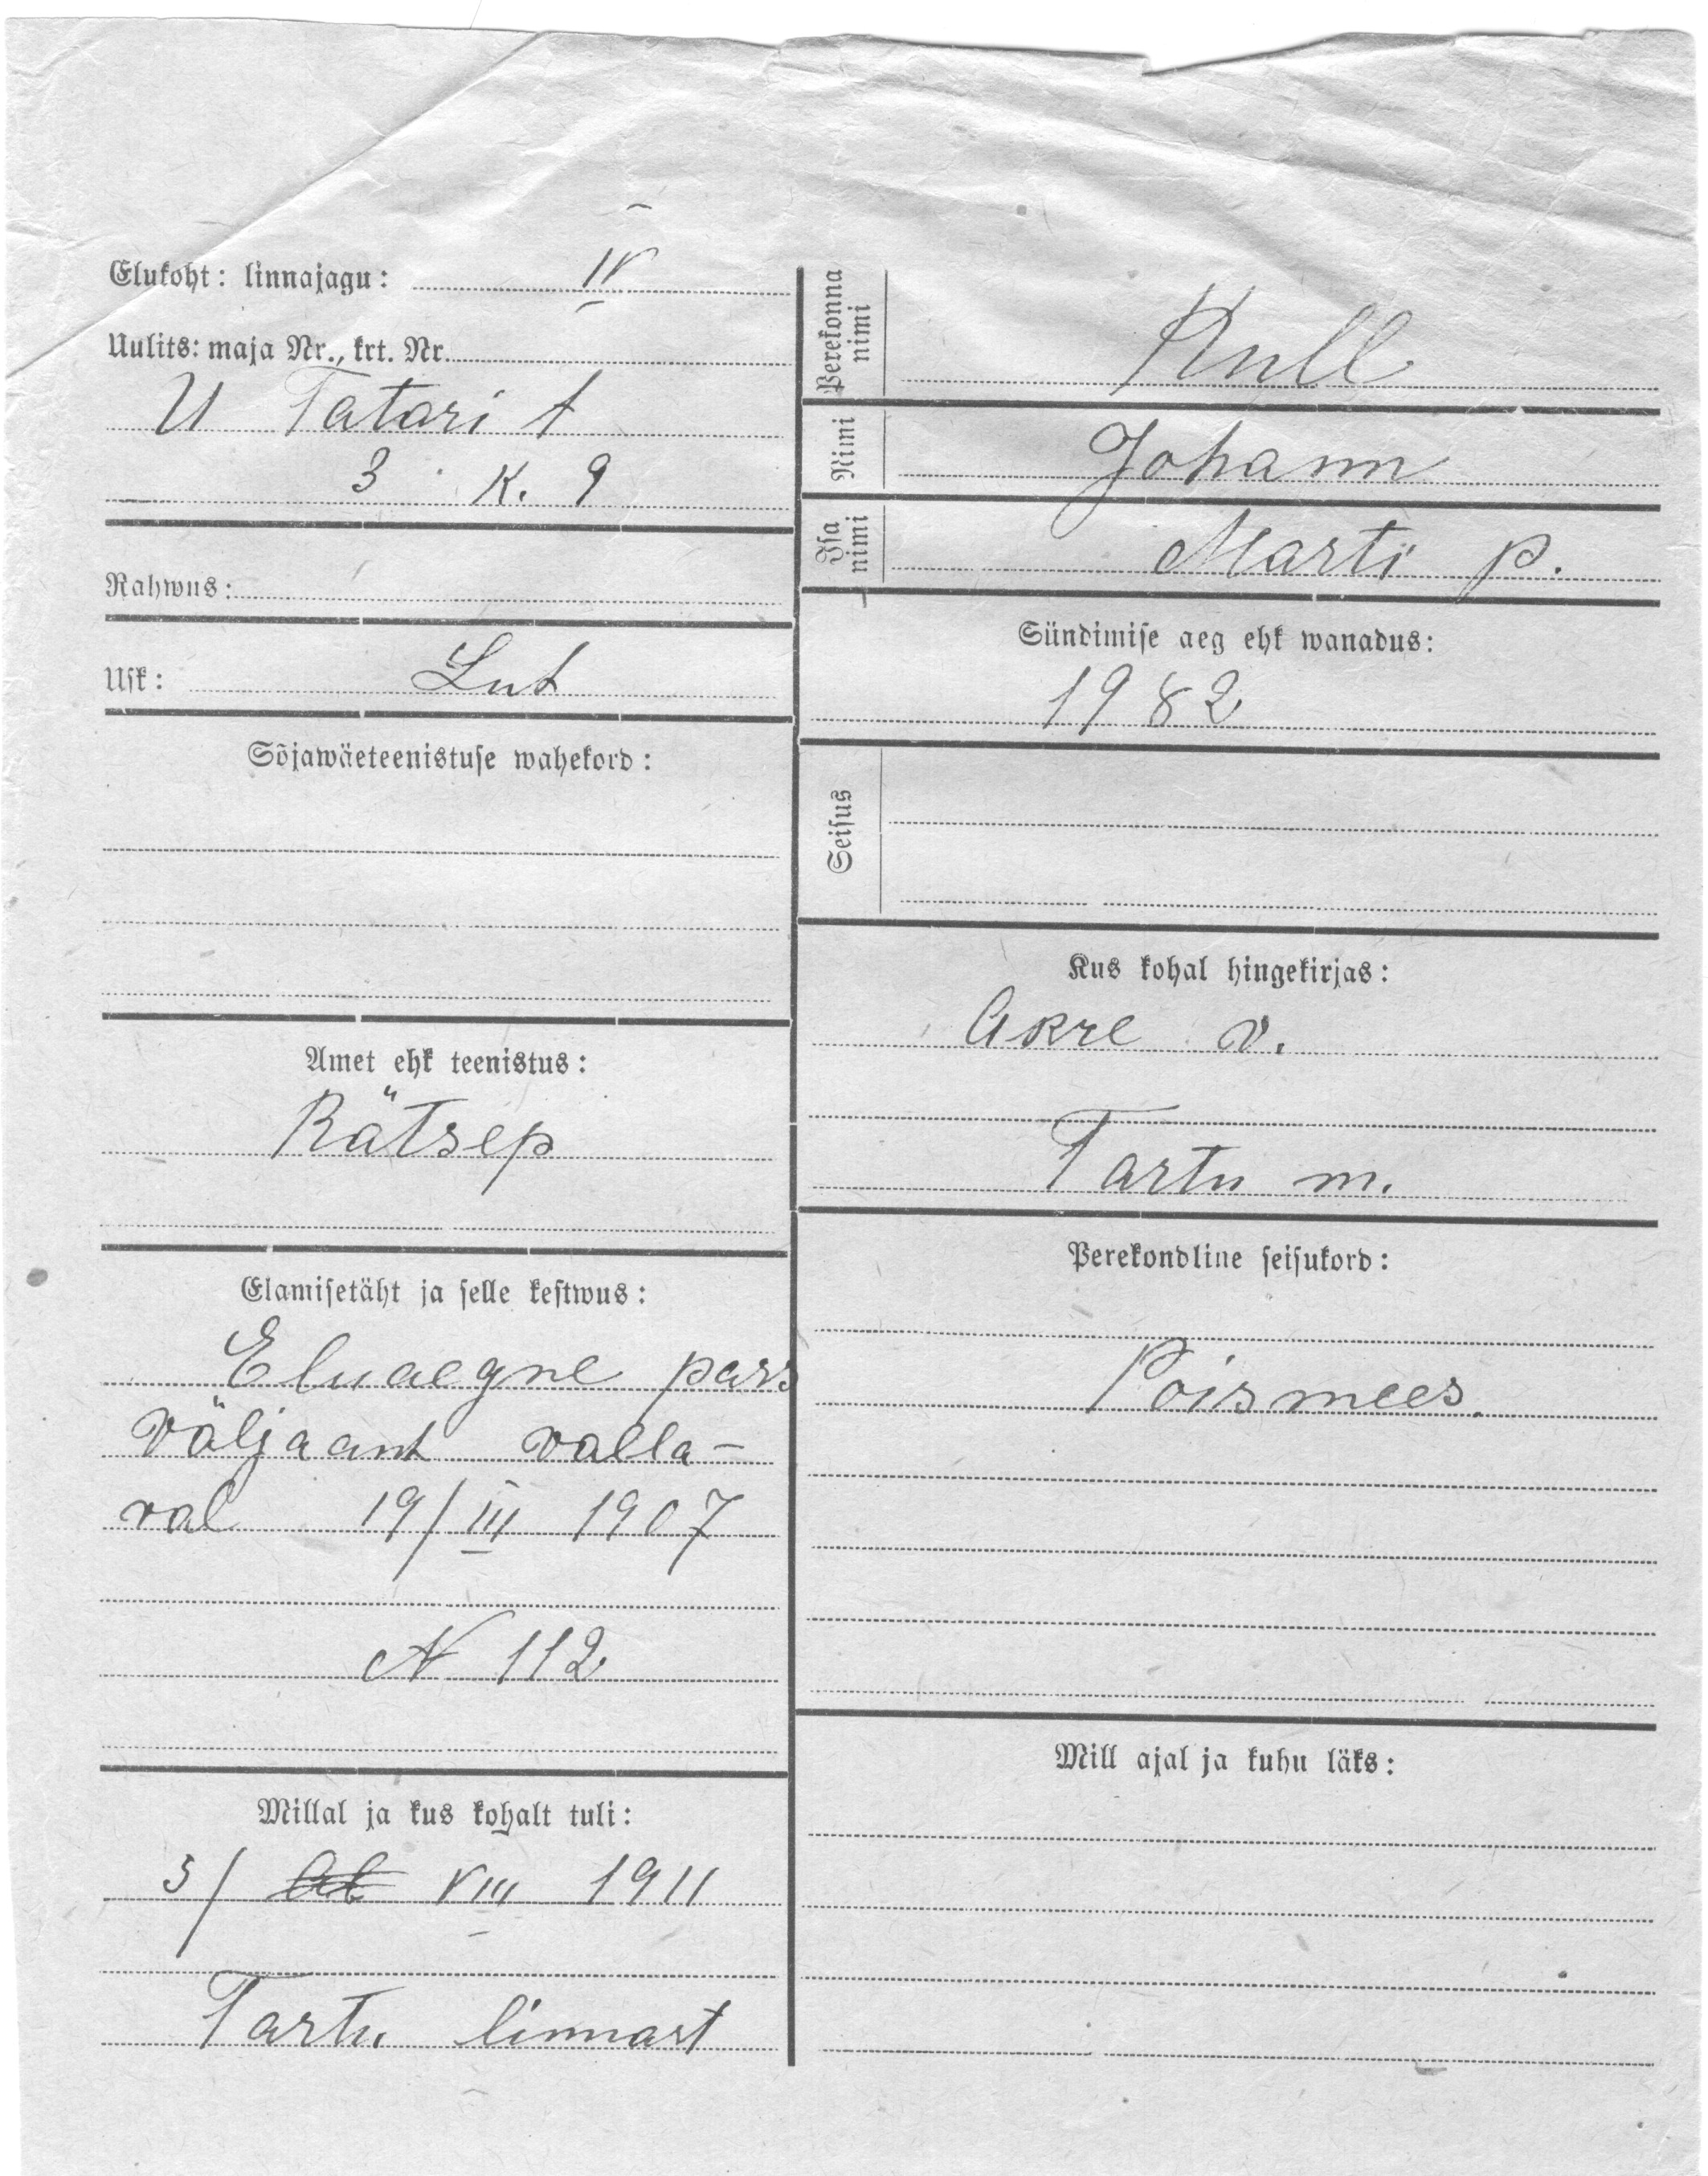 Elukoht: linnajagu: IV
Uulits: maja Nr., krt. Nr.
U Tatari t
3 K. 9
Rahwus:
Usk: Lut
Sõjawäeteenistuse wahekord:
Amet ehk teenistus:
Rätsep
Elamisetäht ja selle kestwus:
Eluaegne pass
väljaant valla-
val 19/III 1907
N 112
Millal ja kus kohalt tuli:
5/ VIII 1911
Tartu linnast
Perekonna
nimi
Kull
Nimi
Johann
Isa
nimi
Marti p.
Sündimise aeg ehk wanadus:
1982
Seisus
Kus kohal hingekirjas:
Akre v.
Tartu m.
Perekondline seisukord:
Poismees.
Mill ajal ja kuhu läks: